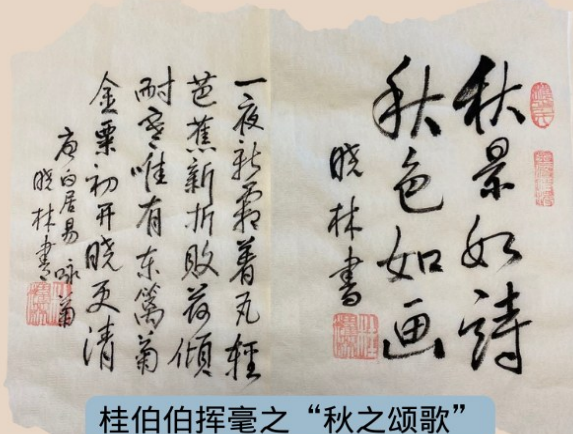 秋景如詩
秋色如画
晓林書
一夜新霜着瓦輕
芭蕉新折敗荷傾
耐寒唯有东篱菊
金粟初开晓更清
唐白居易咏菊
晓林書
桂伯伯挥毫之“秋之颂歌”